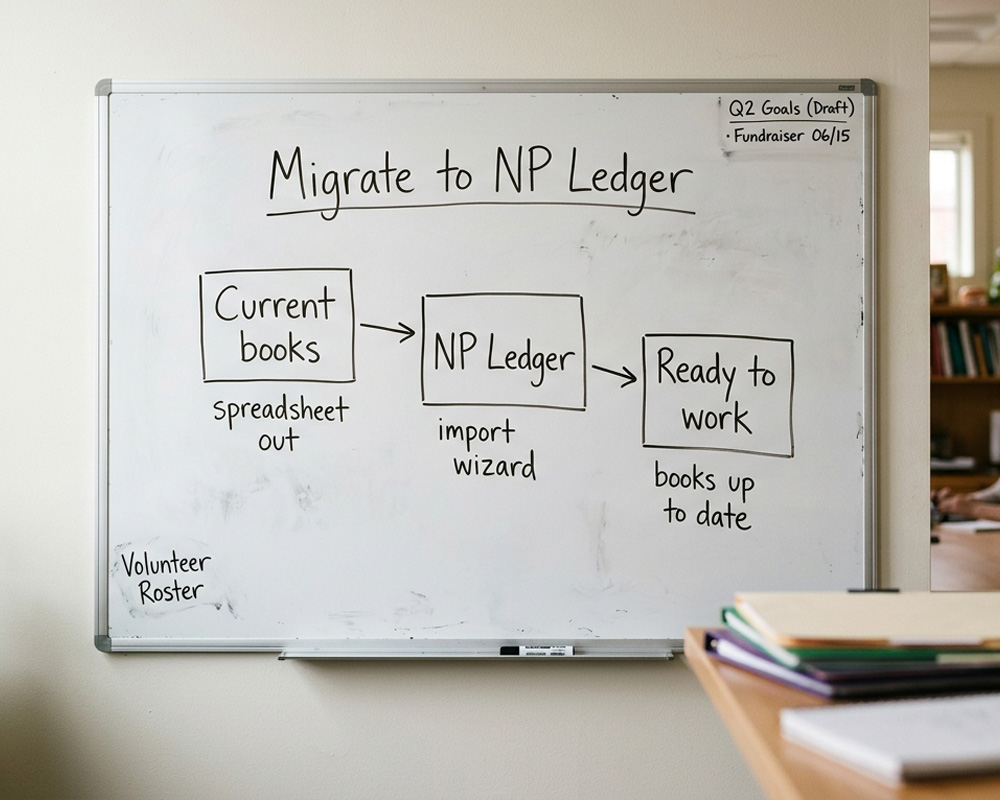 Q2 Goals (Draft)
· Fundraiser 06/15
Migrate to NP Ledger
Current
books
spreadsheet
out
NP Ledger
import
wizard
Ready to
work
books up
to date
Volunteer
Roster